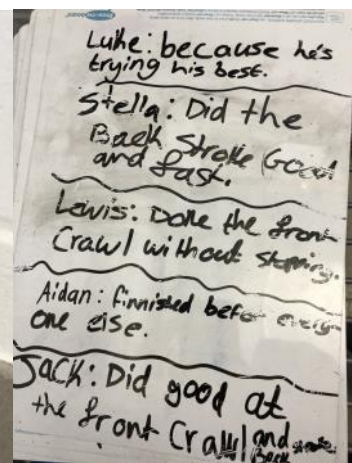 Luke: because he's
trying his best.
Stella: Did the
Back Stroke Good
and fast.
Lewis: Done the front
Crawl without stopping.
Aidan: finnished before every
one else.
JACK: Did good at
the front Crawl and
Back stroke.